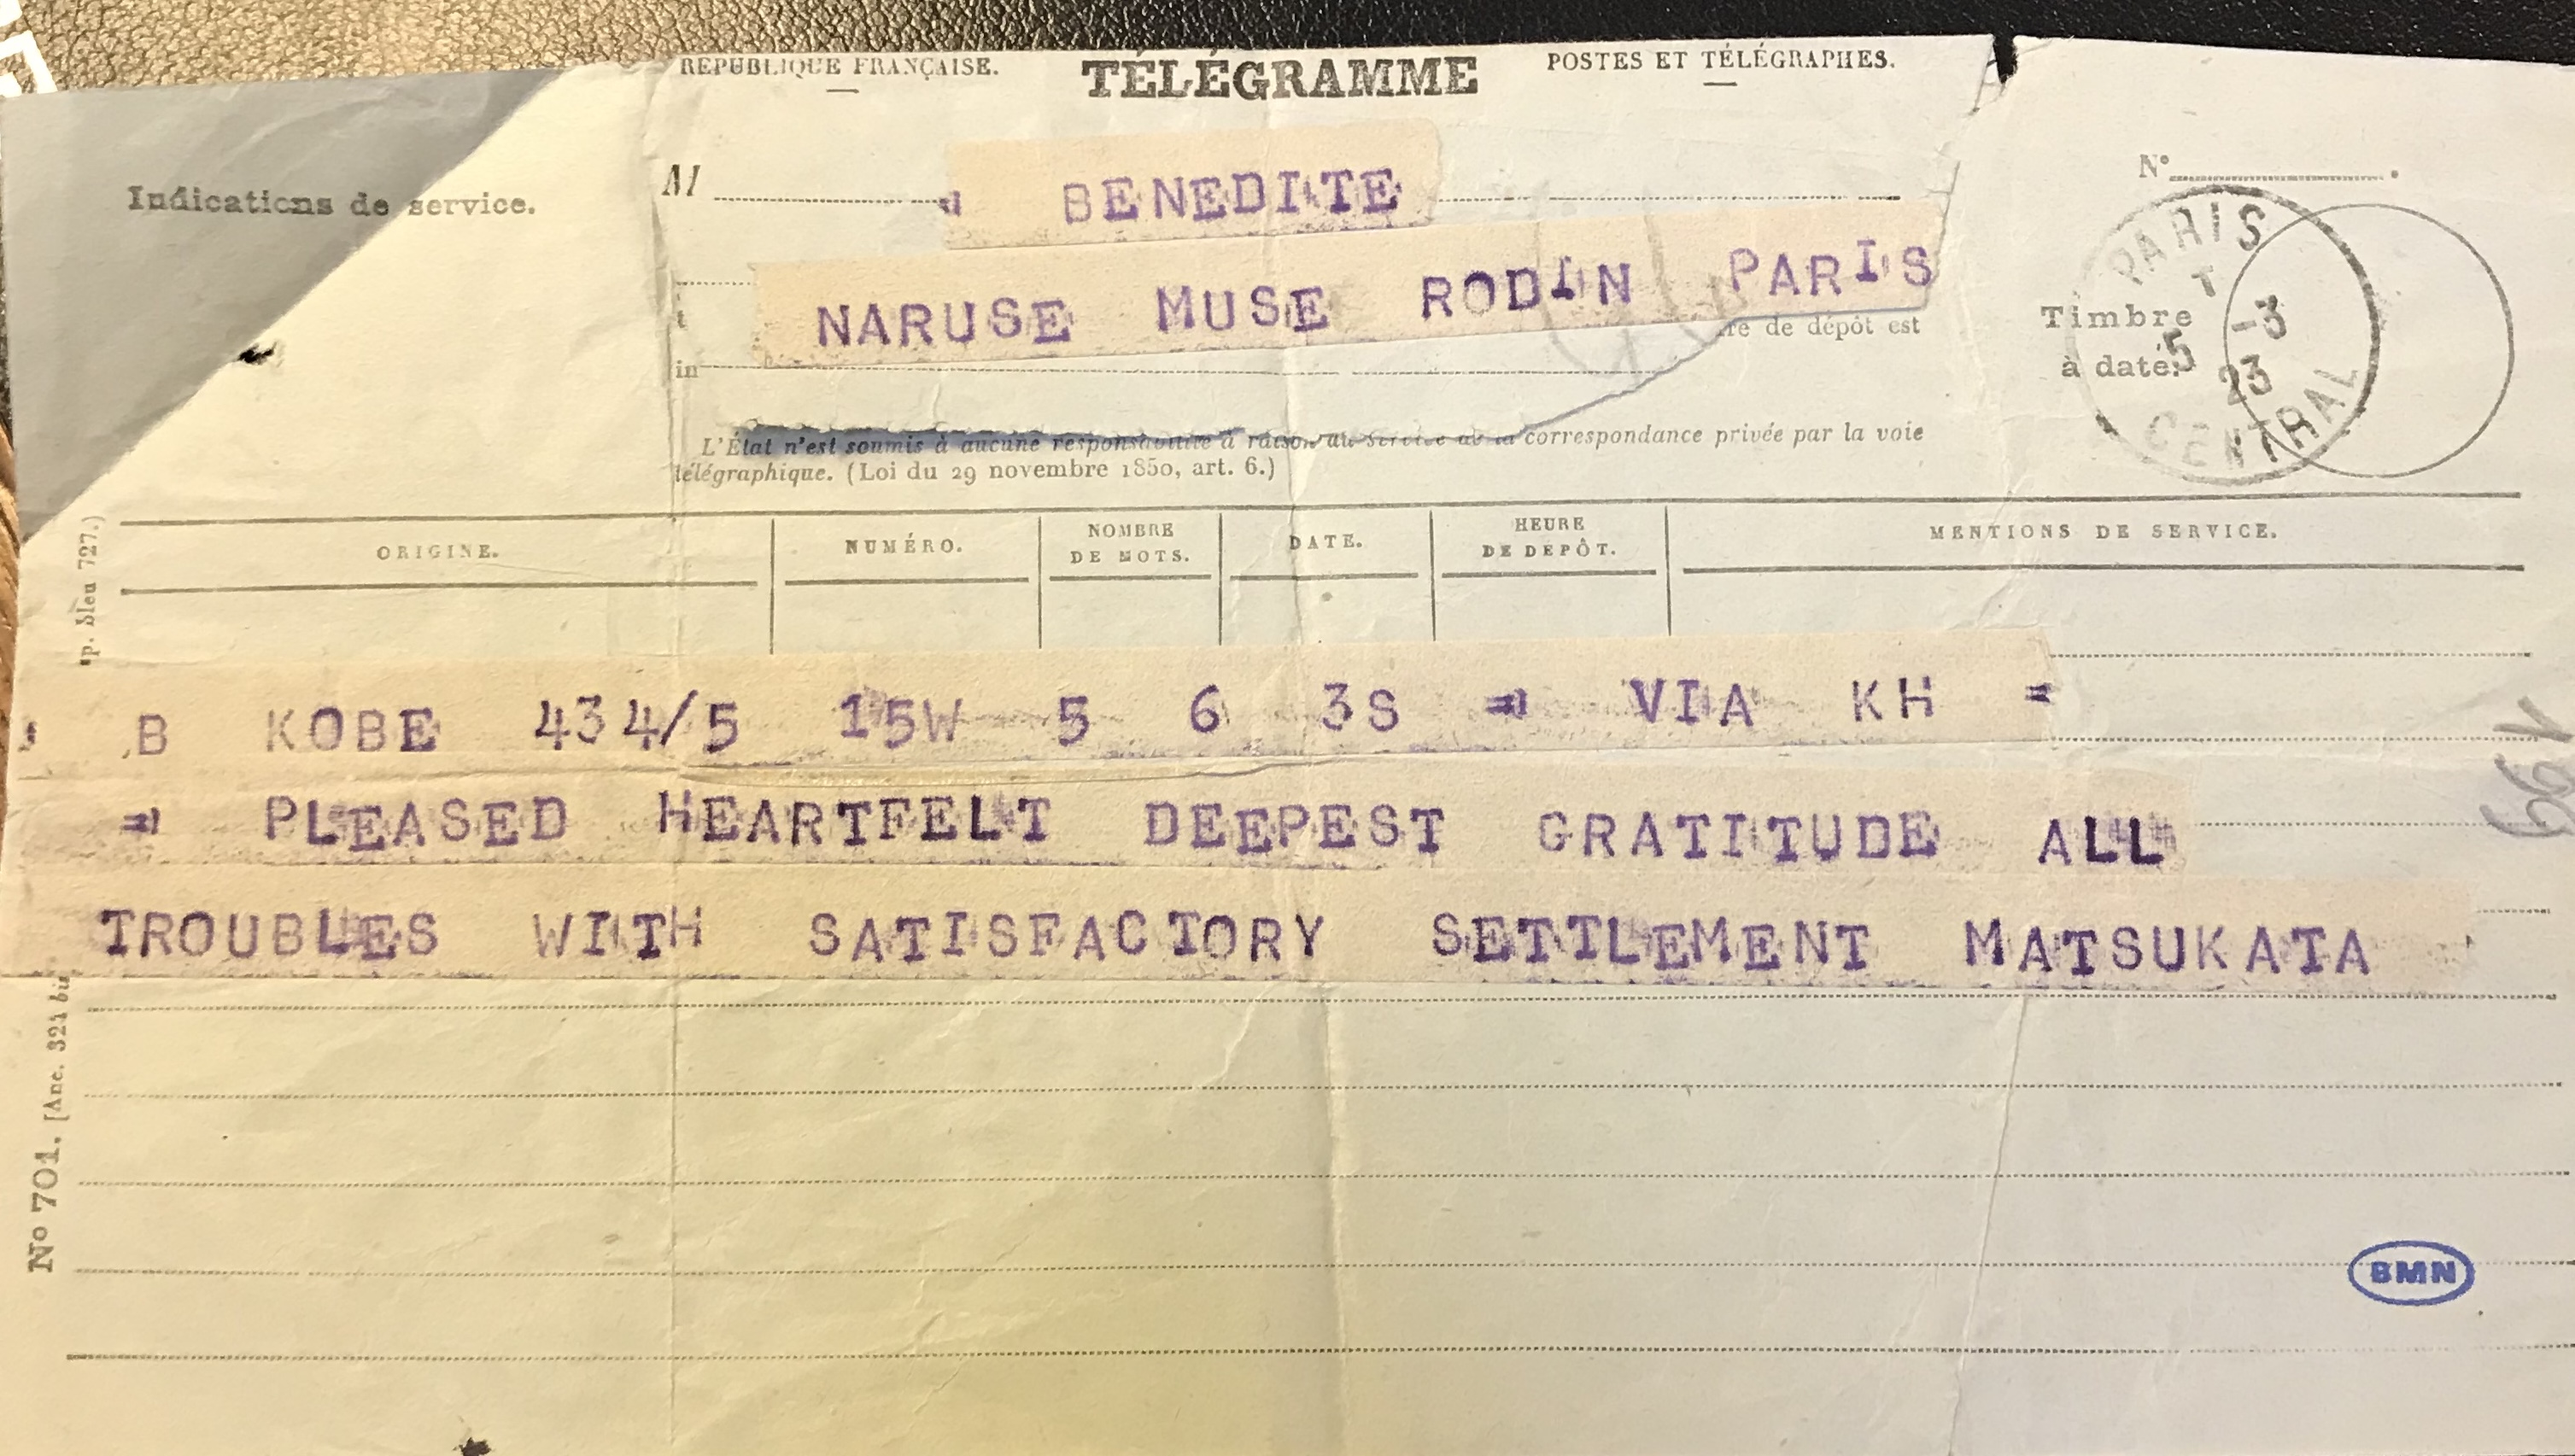 RÉPUBLIQUE FRANÇAISE. TÉLÉGRAMME POSTES ET TÉLÉGRAPHES.
Indications de service.
M = BENEDITE
NARUSE MUSE RODIN PARIS
de dépôt est
in
L'État n'est soumis à aucune responsabilité à raison du service de la correspondance privée par la voie
télégraphique. (Loi du 29 novembre 1850, art. 6.)
N° .
Timbre
à date.
PARIS
T
5 -3
23
CENTRAL
ORIGINE. NUMÉRO. NOMBRE DE MOTS. DATE. HEURE DE DEPÔT. MENTIONS DE SERVICE.
B KOBE 434/5 15W 5 6 3S = VIA KH =
= PLEASED HEARTFELT DEEPEST GRATITUDE ALL
TROUBLES WITH SATISFACTORY SETTLEMENT MATSUKATA
No 701. [Anc. 321 bis
p. bleu 727.)
BMN